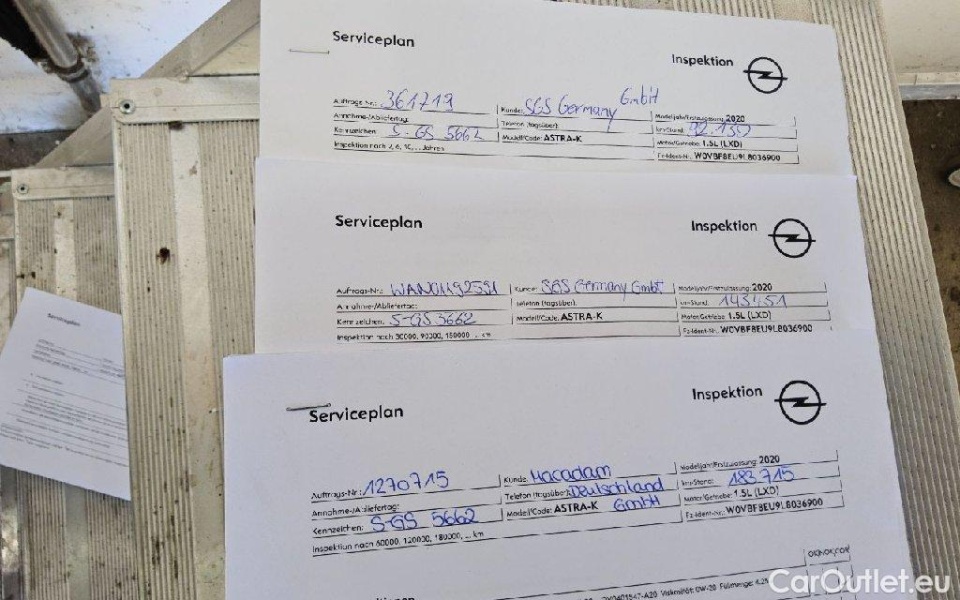 Serviceplan
Inspektion
Auftrags-Nr.: 361719
Kunde: SGS Germany GmbH
Modelljahr/Erstzulassung: 2020
Annahme-/Abliefertag:
Telefon (tagsüber):
km-Stand: 92.150
Kennzeichen: S-GS 5662
Modell/Code: ASTRA-K
Motor/Getriebe: 1.5L (LXD)
Inspektion nach 2, 6, 10, ... Jahren
Fz-Ident-Nr.: W0VBF8EU9L8036900
Serviceplan
Inspektion
Auftrags-Nr.:
Kunde: SGS Germany GmbH
Modelljahr/Erstzulassung: 2020
Annahme-/Abliefertag:
Telefon (tagsüber):
km-Stand: 145451
Kennzeichen: S-GS 5662
Modell/Code: ASTRA-K
Motor/Getriebe: 1.5L (LXD)
Inspektion nach 30000, 90000, 150000, ... km
Fz-Ident-Nr.: W0VBF8EU9L8036900
Serviceplan
Inspektion
Auftrags-Nr.: 1270715
Kunde: Macadam
Modelljahr/Erstzulassung: 2020
Annahme-/Abliefertag:
Telefon (tagsüber): Deutschland
km-Stand: 183.715
Kennzeichen: S-GS 5662
Modell/Code: ASTRA-K GmbH
Motor/Getriebe: 1.5L (LXD)
Inspektion nach 60000, 120000, 180000, ... km
Fz-Ident-Nr.: W0VBF8EU9L8036900
Viskosität: 0W-20 Füllmenge:
Serviceplan
CarOutlet.eu